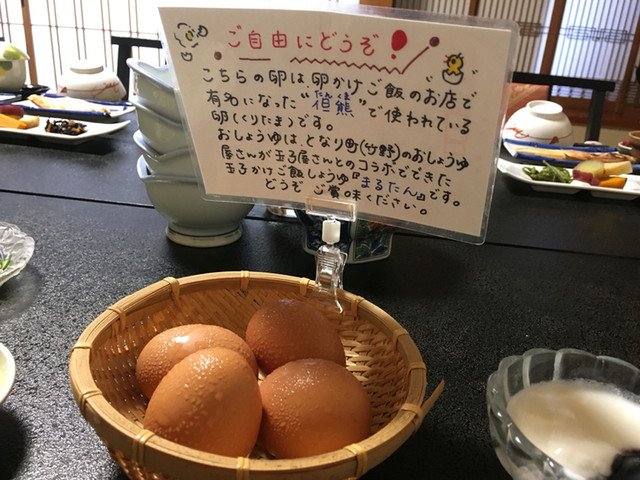 ご自由にどうぞ!
こちらの卵は卵かけご飯のお店で
有名になった"但熊"で使われている
卵(くりたま)です。
おしょうゆは、となり町(竹野)のおしょうゆ
屋さんが玉子屋さんとのコラボでできた
玉子かけご飯しょうゆ『まるたん』です。
どうぞ ご賞味ください。